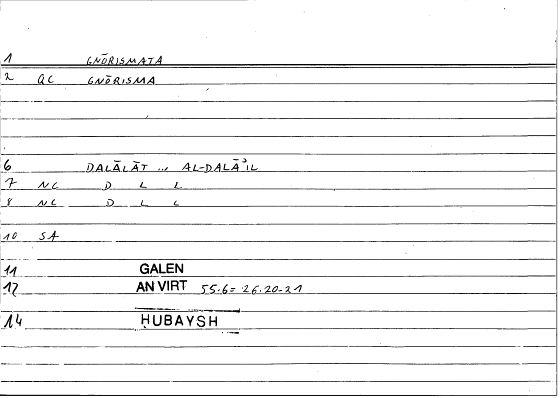 1 GNŌRISMATA
2 QC GNŌRISMA
6 DALĀLĀT ... AL-DALĀʾIL
7 NC D L L
8 NC D L L
10 SA
11 GALEN
12 AN VIRT 55.6 = 26.20-21
14 ḤUBAYSH